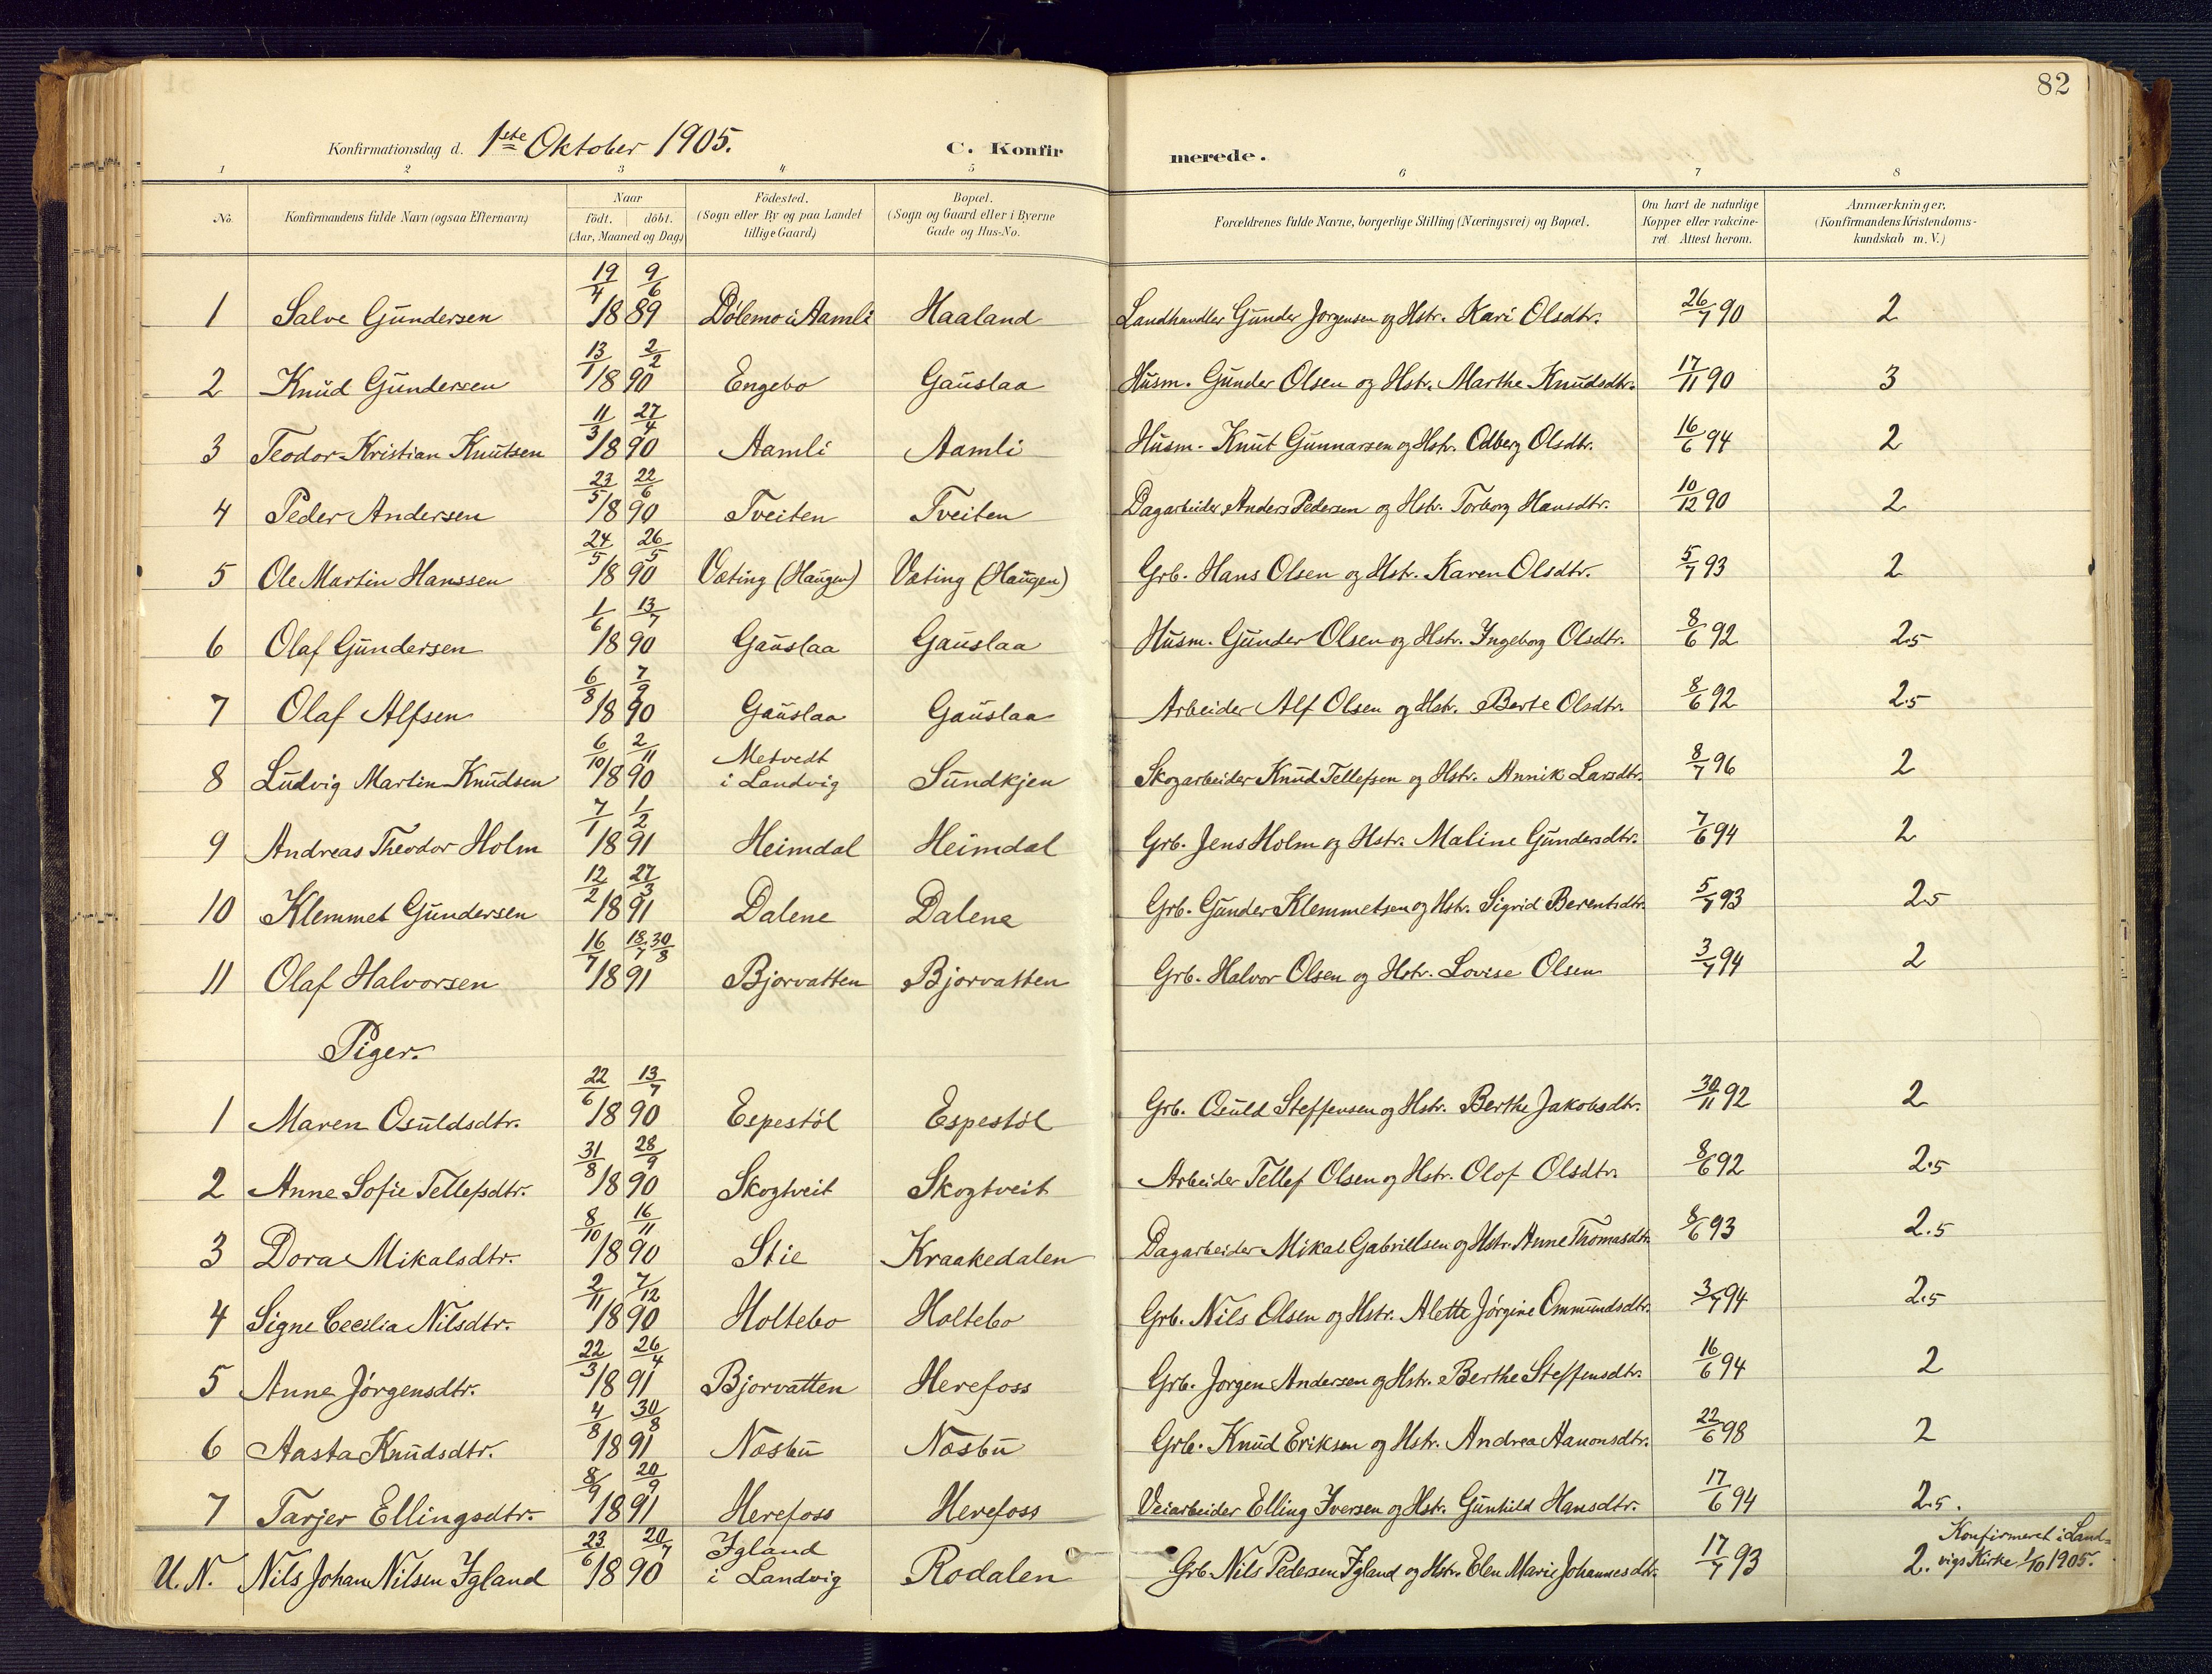 82
Konfirmationsdag d. 1ste Oktober 1905. C. Konfirmerede.
1 2 3 4 5 6 7 8
No. Konfirmandens fulde Navn (ogsaa Efternavn) Naar födt. döbt. (Aar, Maaned og Dag) Födested. (Sogn eller By og paa Landet tillige Gaard) Bopæl. (Sogn og Gaard eller i Byerne Gade og Hus-No. Forældrenes fulde Navne, borgerlige Stilling (Næringsvei) og Bopæl. Om havt de naturlige Kopper eller vakcineret Attest herom. Anmærkninger, (Konfirmandens Kristendomskundskab m. V.)
1 Salve Gundersen 19/4 9/6 1889 Dölemo i Aamli Haaland Landhandler Gunder Jorgensen og Hstr. Kari Olsdtr. 26/7 90 2
2 Knud Gundersen 13/1 2/2 1890 Engebo Gauslaa Husm. Gunder Olsen og Hstr. Marthe Knudsdtr. 17/11 90 3
3 Teodor Kristian Knutsen 11/3 27/4 1890 Aamli Aamli Husm. Knut Gunnarsen og Hstr. Odberg Olsdtr. 16/6 94 2
4 Peder Andersen 23/5 22/6 1890 Tveiten Tveiten Dagarbeider Anders Pedersen og Hstr. Torborg Hansdtr. 10/12 90 2
5 Ole Martin Hanssen 24/5 26/5 1890 Væting (Haugen) Væting (Haugen) Grb. Hans Olsen og Hstr. Karen Olsdtr. 5/7 93 2
6 Olaf Gundersen 1/6 13/7 1890 Gauslaa Gauslaa Husm. Gunder Olsen og Hstr. Ingeborg Olsdtr. 8/6 92 2.5
7 Olaf Alfsen 6/8 7/9 1890 Gauslaa Gauslaa Arbeider Alf Olsen og Hstr. Berte Olsdtr. 8/6 92 2.5
8 Ludvig Martin Knudsen 6/10 2/11 1890 Metvedt i Landvig Sundkjen Skogarbeider Knud Tellefsen og Hstr. Annik Larsdtr. 8/7 96 2
9 Andreas Theodor Holm 7/1 1/2 1891 Heimdal Heimdal Grb. Jens Holm og Hstr. Maline Gundersdtr. 7/6 94 2
10 Klemmet Gundersen 12/2 27/3 1891 Dalene Dalene Grb. Gunder Klemmetsen og Hstr. Sigrid Berentsdtr. 5/7 93 2.5
11 Olaf Halvorsen 16/7 18/7 30/8 1891 Bjorvatten Bjorvatten Grb. Halvor Olsen og Hstr. Lovise Olsen 3/7 94 2
Piger.
1 Maren Osuldsdtr. 22/6 13/7 1890 Espestöl Espestöl Grb. Osuld Steffensen og Hstr. Berthe Jakobsdtr. 30/11 92 2
2 Anne Sofie Tellefsdtr. 31/8 28/9 1890 Skogtveit Skogtveit Arbeider Tellef Olsen og Hstr. Olof Olsdtr. 8/6 92 2.5
3 Dora Mikalsdtr. 8/10 16/11 1890 Stie Kraakedalen Dagarbeider Mikal Gabrillsen og Hstr. Anne Thomasdtr. 8/6 93 2.5
4 Signe Cecilia Nilsdtr. 2/11 7/12 1890 Holtebo Holtebo Grb. Nils Olsen og Hstr. Alette Jörgine Ommundsdtr. 3/7 94 2.5
5 Anne Jörgensdtr. 22/3 26/4 1891 Bjorvatten Herefoss Grb. Jorgen Andersen og Hstr. Berthe Steffensdtr. 16/6 94 2
6 Aasta Knudsdtr. 4/8 30/8 1891 Næsbu Næsbu Grb. Knud Eriksen og Hstr. Andrea Aanonsdtr. 22/6 98 2
7 Tarjer Ellingsdtr. 8/9 20/9 1891 Herefoss Herefoss Veiarbeider Elling Iversen og Hstr. Gunhild Hansdtr. 17/6 94 2.5.
U. N. Nils Johan Nilsen Igland 23/6 20/7 1890 Igland i Landvig Rodalen Grb. Nils Pedersen Igland og Hstr. Elen Marie Johannesdtr. 17/7 93 2. Konfirmeret i Landvigs Kirke 1/10 1905.